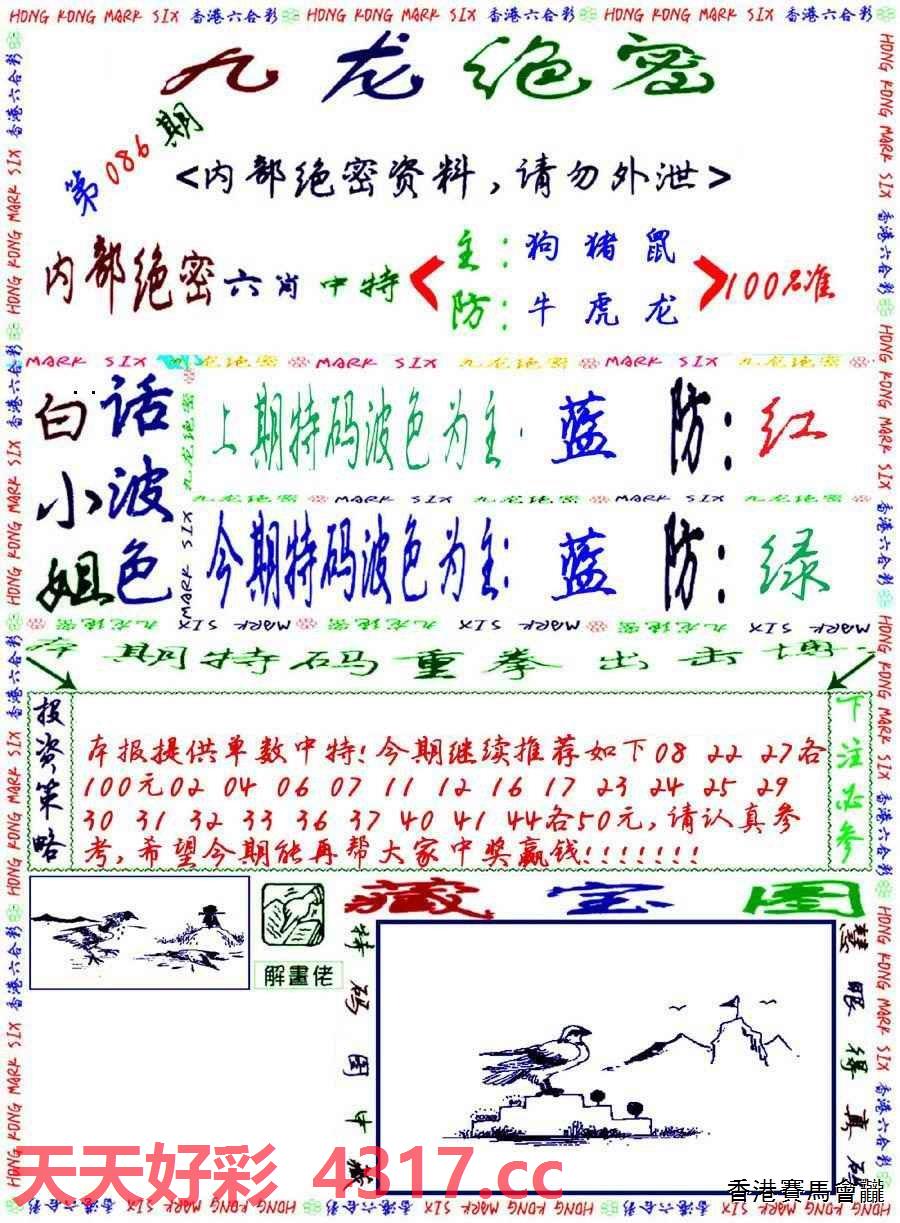 HONG KONG MARK SIX 香港六合彩 HONG KONG MARK SIX 香港六合彩 HONG KONG MARK SIX 香港六合彩 HONG KONG MARK SIX 香港六合彩
九龙绝密
第086期
<内部绝密资料,请勿外泄>
内部绝密六肖中特
主:狗猪鼠
防:牛虎龙
100%准
MARK SIX 九龙绝密 MARK SIX 九龙绝密 MARK SIX 九龙绝密
白话小波姐色
上期特码波色为主.蓝 防:红
九龙绝密 MARK SIX 九龙绝密 MARK SIX 九龙绝密
今期特码波色为主:蓝 防:绿
九龙绝密 MARK SIX 九龙绝密 MARK SIX 九龙绝密 MARK SIX
本期特码重拳出击博
投资策略
本报提供单数中特!今期继续推荐如下08 22 27各
100元02 04 06 07 11 12 16 17 23 24 25 29
30 31 32 33 36 37 40 41 44各50元,请认真参
考,希望今期能再帮大家中奖赢钱!!!!!!!
下注必参
解畫佬
藏宝图
特码图中藏
慧眼得真码
天天好彩 4317.cc
香港賽馬會